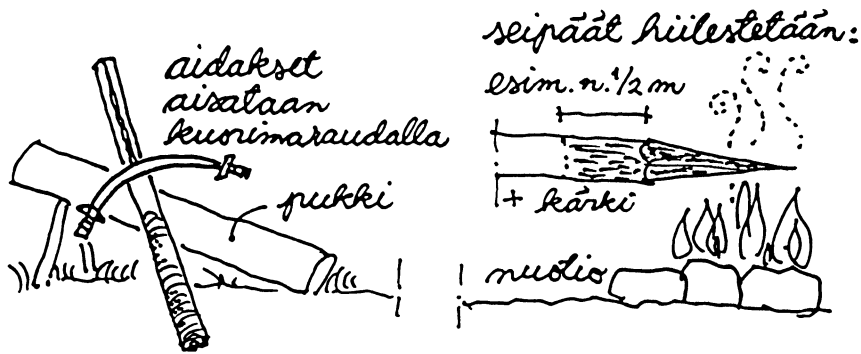 aidakset
aisataan
kuorimaraudalla
pukki
seipäät hiilestetään:
esim. n. 1/2 m
+ kärki
nuotio